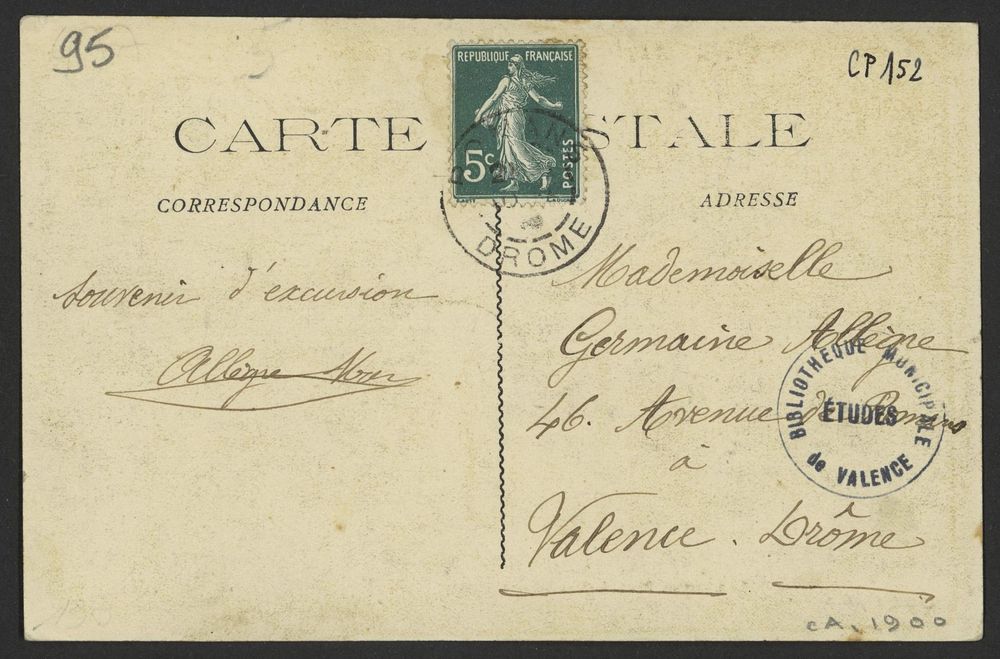 95
CP 152
RÉPUBLIQUE FRANÇAISE
5c
POSTES
CARTE POSTALE
DROME
CORRESPONDANCE
ADRESSE
Souvenir d'excursion
Allègre
Mademoiselle
Germaine Allègre
46. Avenue de Romans
à
Valence. Drôme
BIBLIOTHEQUE MUNICIPALE
ÉTUDES
de VALENCE
CA. 1900